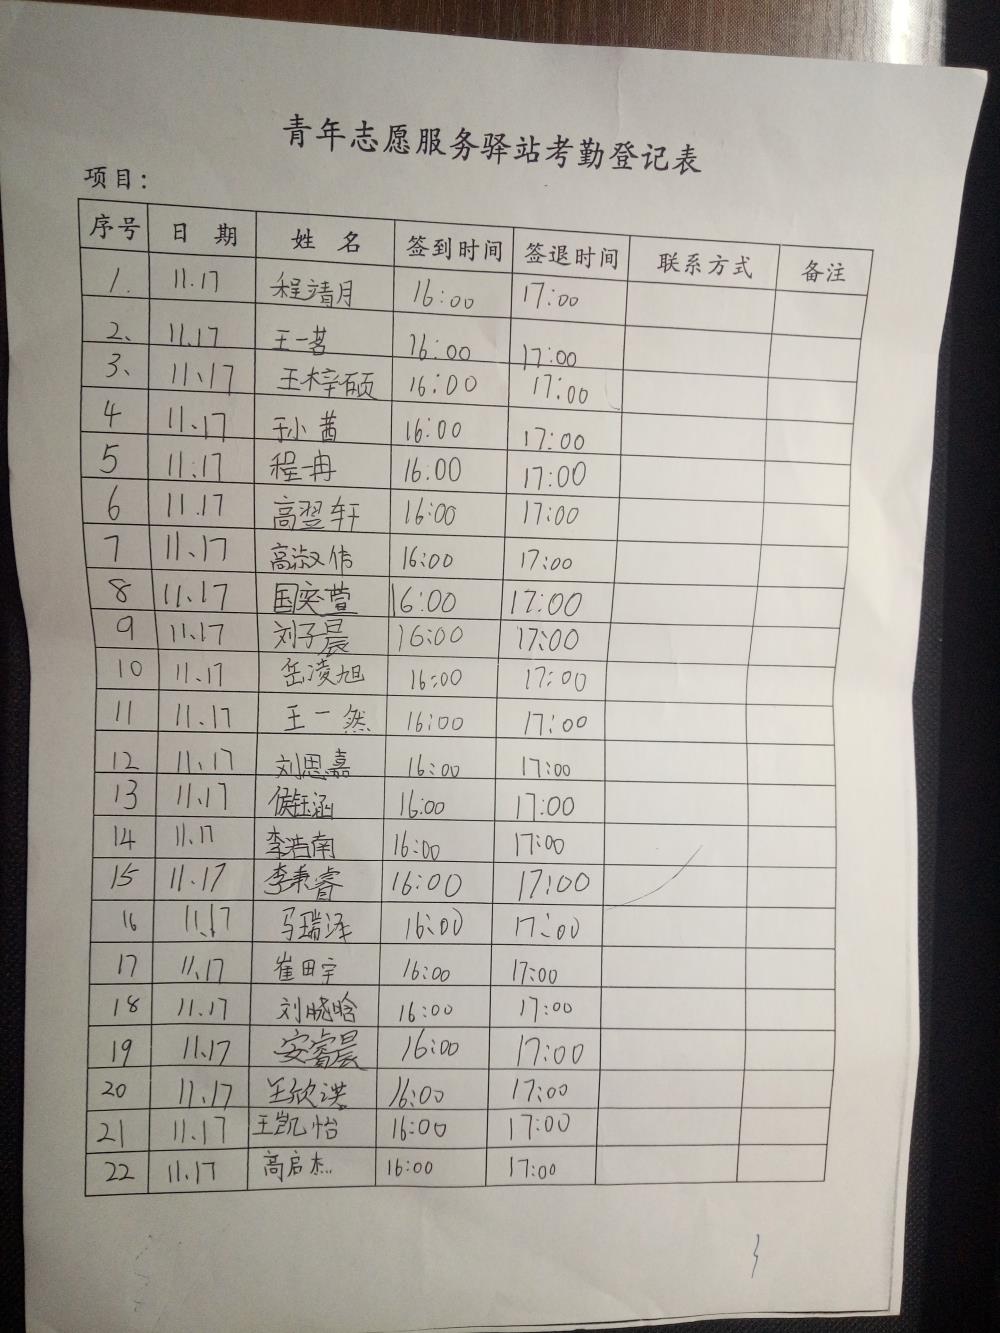 青年志愿服务驿站考勤登记表
项目：
序号 日 期 姓 名 签到时间 签退时间 联系方式 备注
1. 11.17 程靖月 16:00 17:00
2、 11.17 王一茗 16:00 17:00
3、 11、17 王梓硕 16:00 17:00
4 11、17 于小茜 16:00 17:00
5 11.17 程冉 16:00 17:00
6 11.17 高翌轩 16:00 17:00
7 11、17 高淑伟 16:00 17:00
8 11.17 国奕萱 16:00 17:00
9 11.17 刘子晨 16:00 17:00
10 11.17 岳凌旭 16:00 17:00
11 11.17 王一然 16:00 17:00
12 11.17 刘思嘉 16:00 17:00
13 11.17 侯钰涵 16:00 17:00
14 11.17 李浩南 16:00 17:00
15 11.17 李秉睿 16:00 17:00
16 11.17 马瑞泽 16:00 17:00
17 11.17 崔田宇 16:00 17:00
18 11.17 刘晓晗 16:00 17:00
19 11.17 安睿晨 16:00 17:00
20 11.17 王欣洪 16:00 17:00
21 11.17 王凯怡 16:00 17:00
22 11.17 高启杰 16:00 17:00